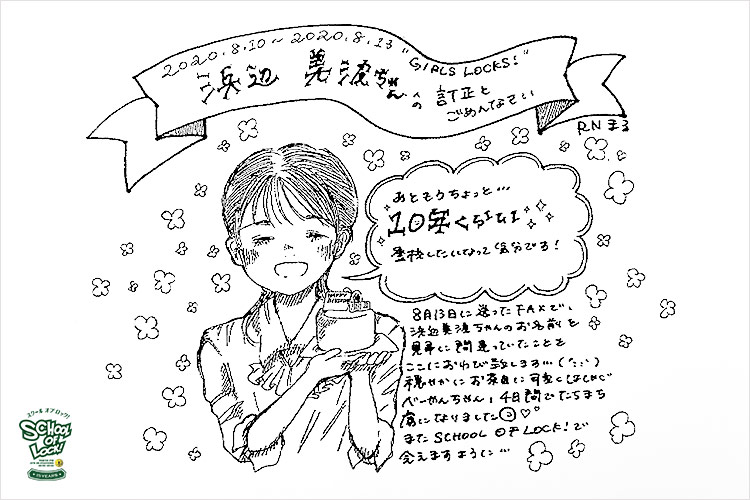 2020.8.10〜2020.8.13 "GIRLS LOCKS!"
浜辺 美波ちゃんへの 訂正と
ごめんなさい
RN まる
あともうちょっと…
10年くらい
登校したいなって気分です!
HAPPY
BIRTHDAY
8月13日に送ったFAXで、
浜辺美波ちゃんのお名前を
見事に間違っていたことを
ここにおわび致します…
穏やかにお茶目に可愛くはしゃぐ
べーめんちゃん、4日間でたちまち
虜になりました
また SCHOOL OF LOCK! で
会えますように…
スクール オブ ロック!
SCHOOL
OF
LOCK!
15 YEARS